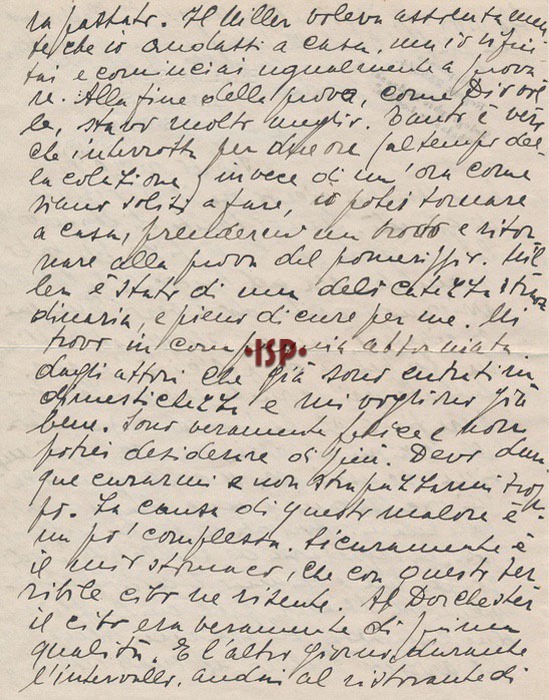 ra passato. Il Miller voleva assolutamen
te che io andassi a casa, ma io rifiu
tai e cominciai ugualmente a prova
re. Alla fine della prova, come Dio vol
le, stavo molto meglio. Tanto è vero
che interrotta per due ore (al tempo del
la colazione) invece di un'ora come
siamo soliti a fare, io potei tornare
a casa, prendermi un brodo e ritor
nare alla prova del pomeriggio. Mil
ler è stato di una delicatezza straor
dinaria, e pieno di cure per me. Mi
trovo in compagnia attorniata
dagli attori che già sono entrati in
dimestichezza e mi vogliono già
bene. Sono veramente felice e non
potrei desiderare di più. Devo dun
que curarmi e non strapazzarmi trop
po. La causa di questo malore è
un po' complessa. Sicuramente è
il mio stomaco, che con questo ter
ribile cibo ne risente. Al Dorchester
il cibo era veramente di prima
qualità. E l'altro giorno, durante
l'intervallo, andai al ristorante di
•ISP•